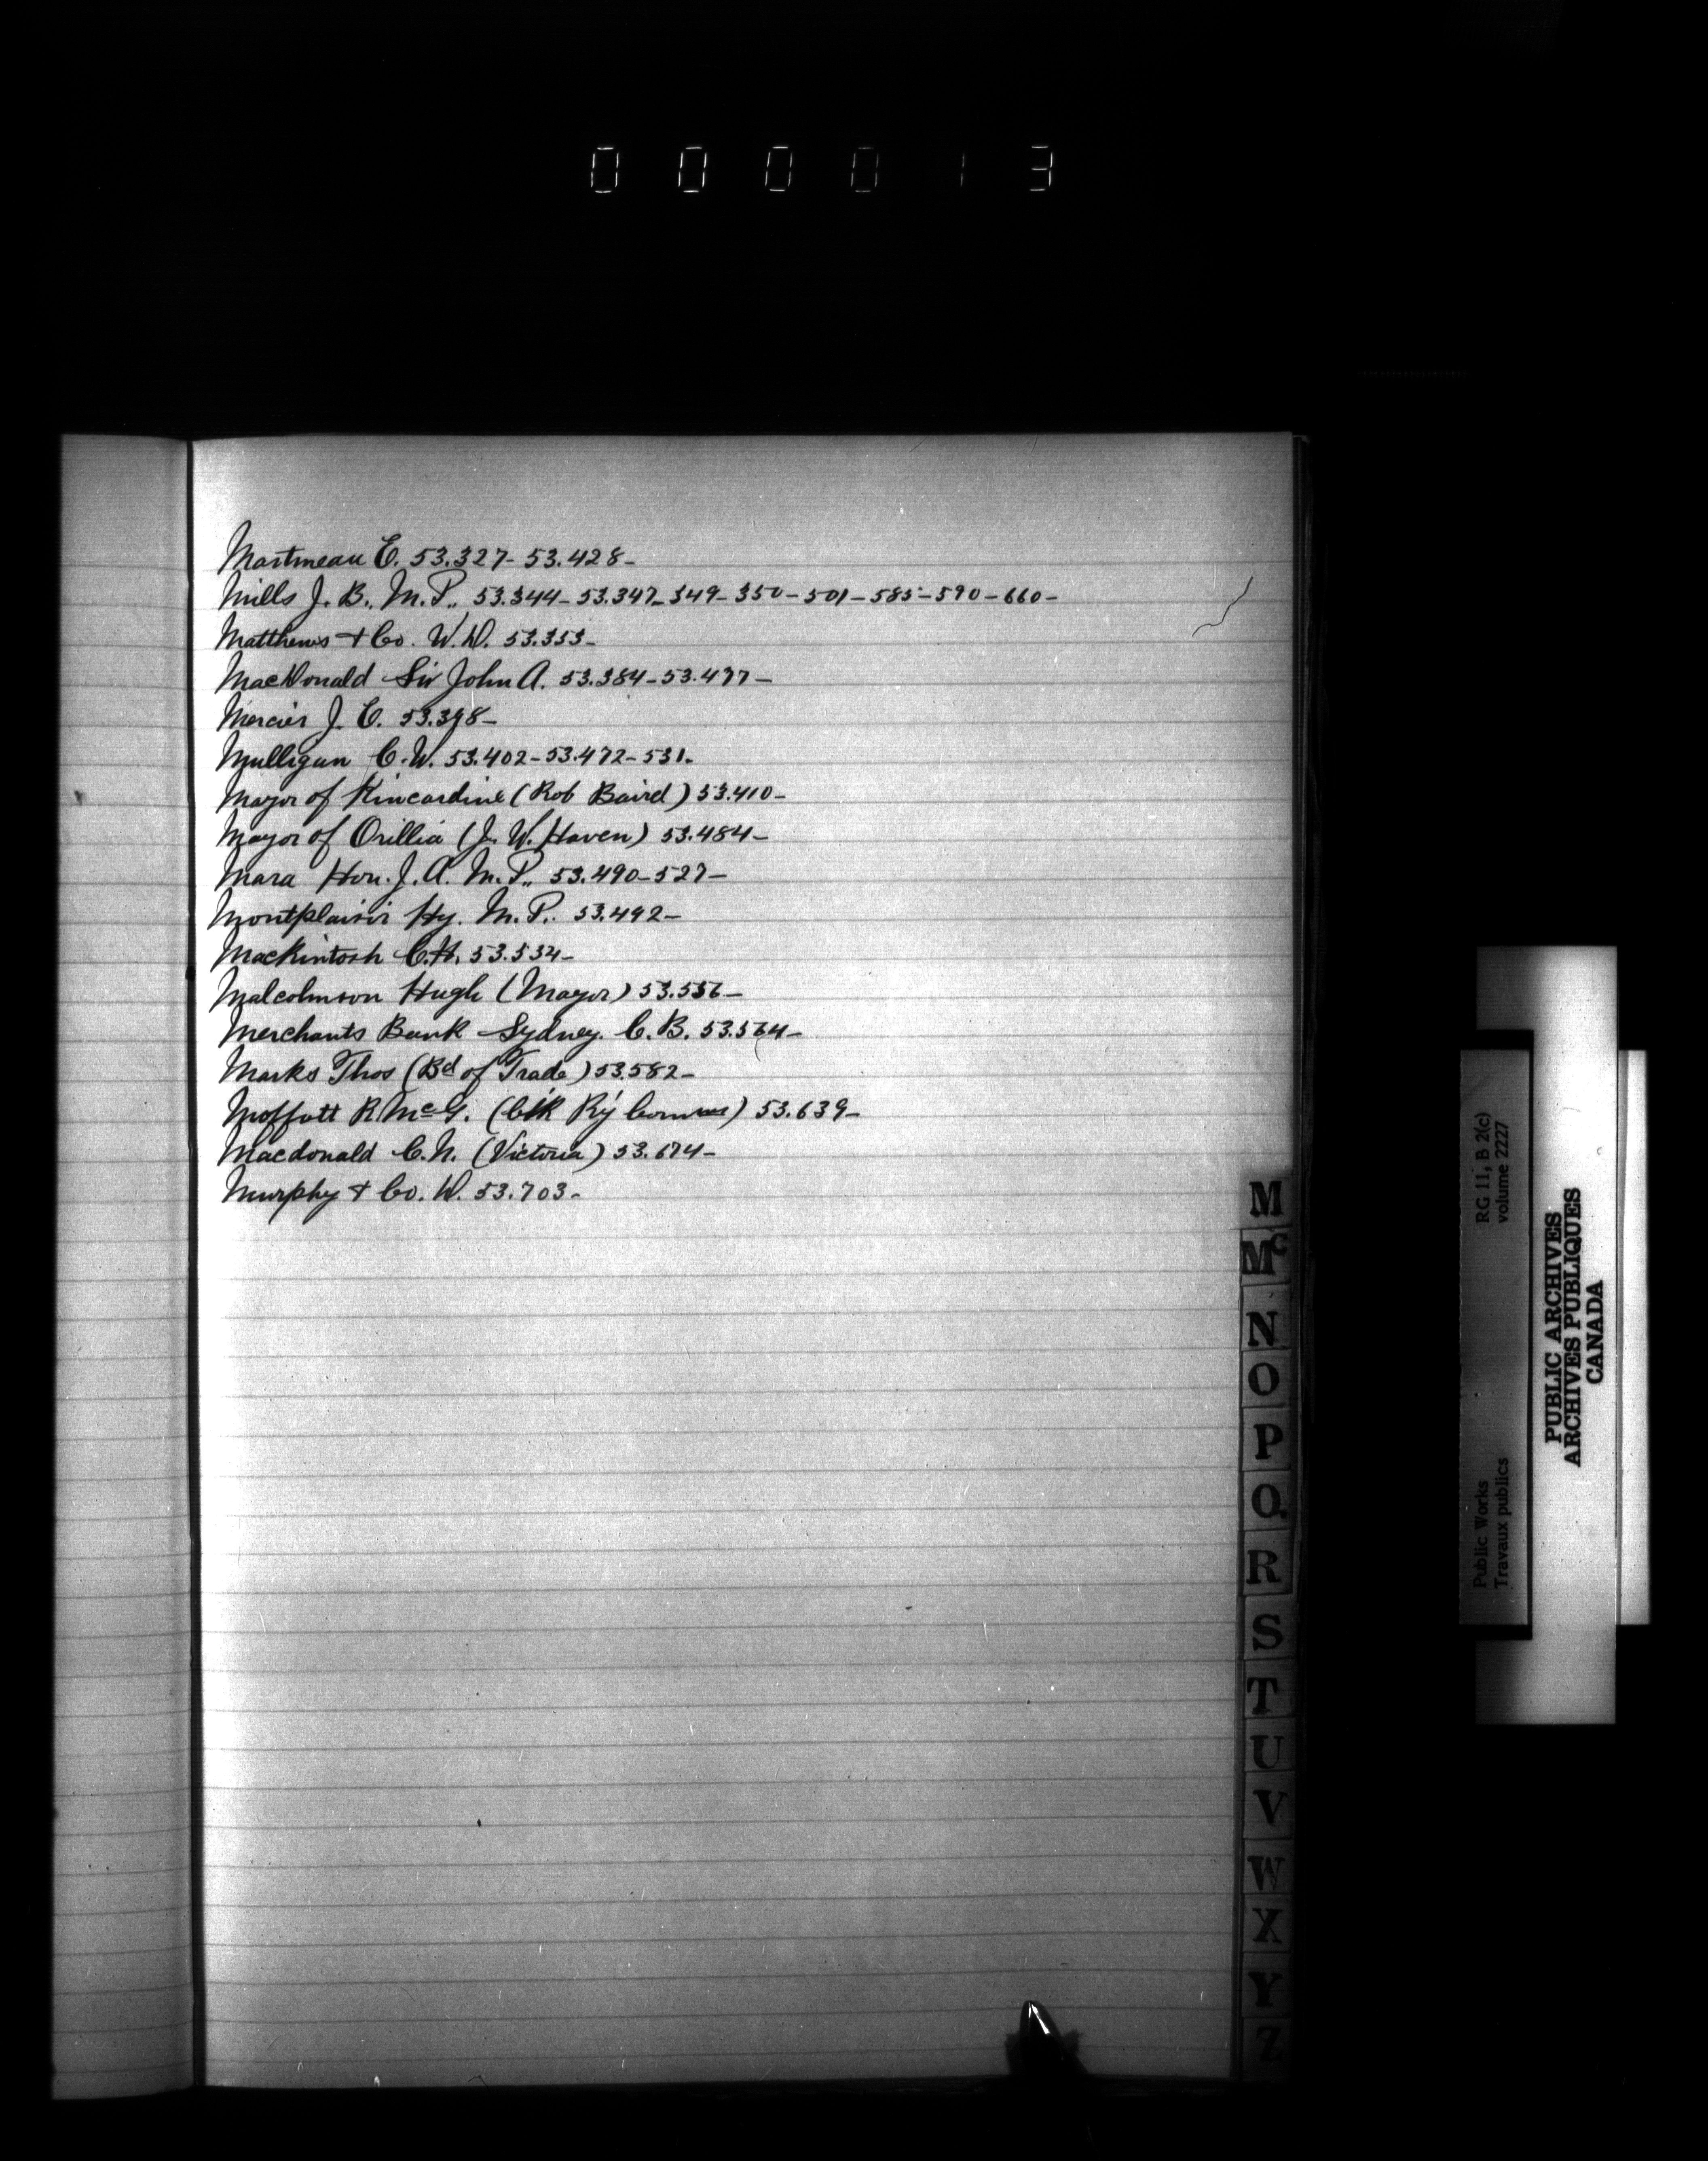 000013
Martineau E. 53.327- 53.428-
Mills J. B., M.P., 53.344- 53.347- 349- 350- 501- 585- 590- 660-
Matthews + Co. W.D. 53.353-
MacDonald Sir John A. 53.384- 53.477-
Mercier J. E. 53.398-
Mulligan C.W. 53.402- 53.472- 531.
Mayor of Kincardine (Rob Baird) 53.410-
Mayor of Orillia (J. W. Haven) 53.484-
Mara Hon. J. A. M.P., 53.490- 527-
Montplaisir Hy. M.P. 53.492-
Mackintosh C.H. 53.534-
Malcolmson Hugh (Mayor) 53.556-
Merchants Bank Sydney. C.B. 53.564-
Marks Thos (Bd of Trade) 53.582-
Moffatt R. McG. (Clk Ry Commrs) 53.639-
Macdonald C.N. (Victoria) 53.674-
Murphy + Co. W. 53.703-
M
Mc
N
O
P
Q
R
S
T
U
V
W
X
Y
Z
RG 11, B 2(c)
volume 2227
Public Works
Travaux publics
PUBLIC ARCHIVES
ARCHIVES PUBLIQUES
CANADA